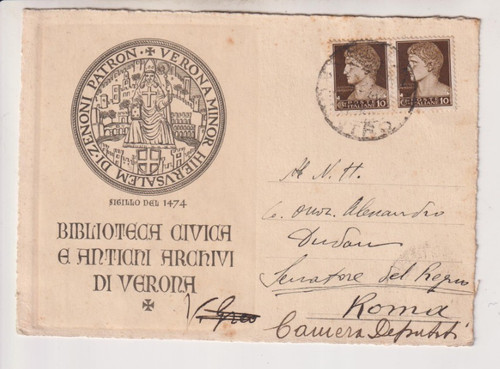 VERONA MINOR HIERVSALEM DI·ZENONI PATRON·
SIGILLO DEL 1474
BIBLIOTECA CIVICA
E ANTICHI ARCHIVI
DI VERONA
POSTE ITALIANE 10
POSTE ITALIANE 10
N. H.
Alessandro
Dudan
Senatore del Regno
Roma
Camera Deputati